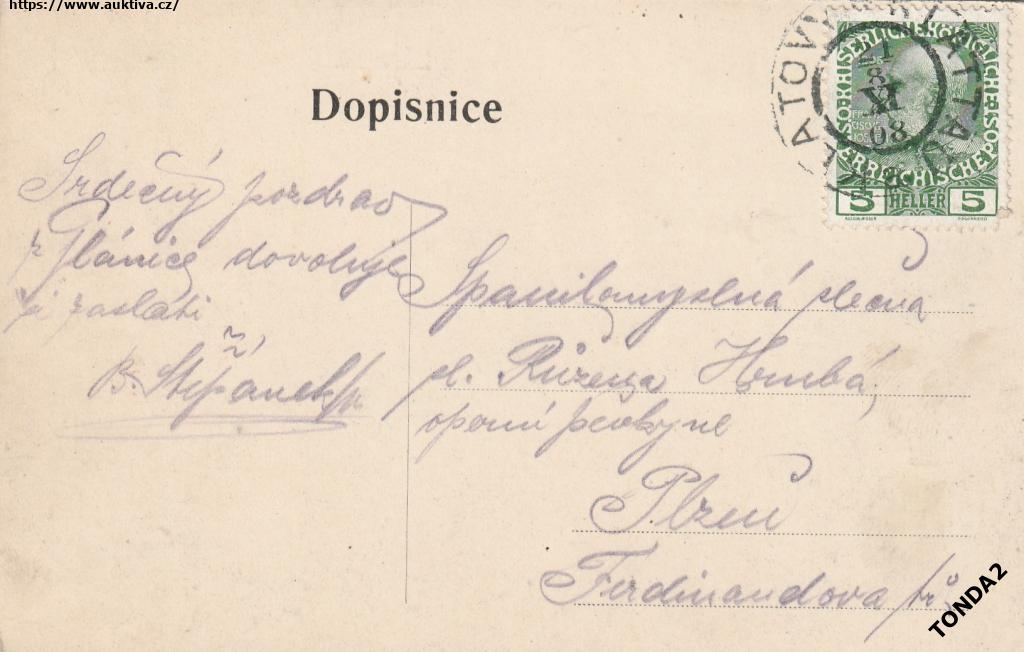 https://www.auktiva.cz/
Dopisnice
KLATOVY KLATTAU
21
8
XI
08
5 HELLER 5
Srdečný pozdrav
z Plánice dovoluje
si zaslati
B. Štěpánek
Spanilomyslná slečna
sl. Růžena Hrubá,
operní pěvkyně
Plzeň
Ferdinandova tř.
TONDA2